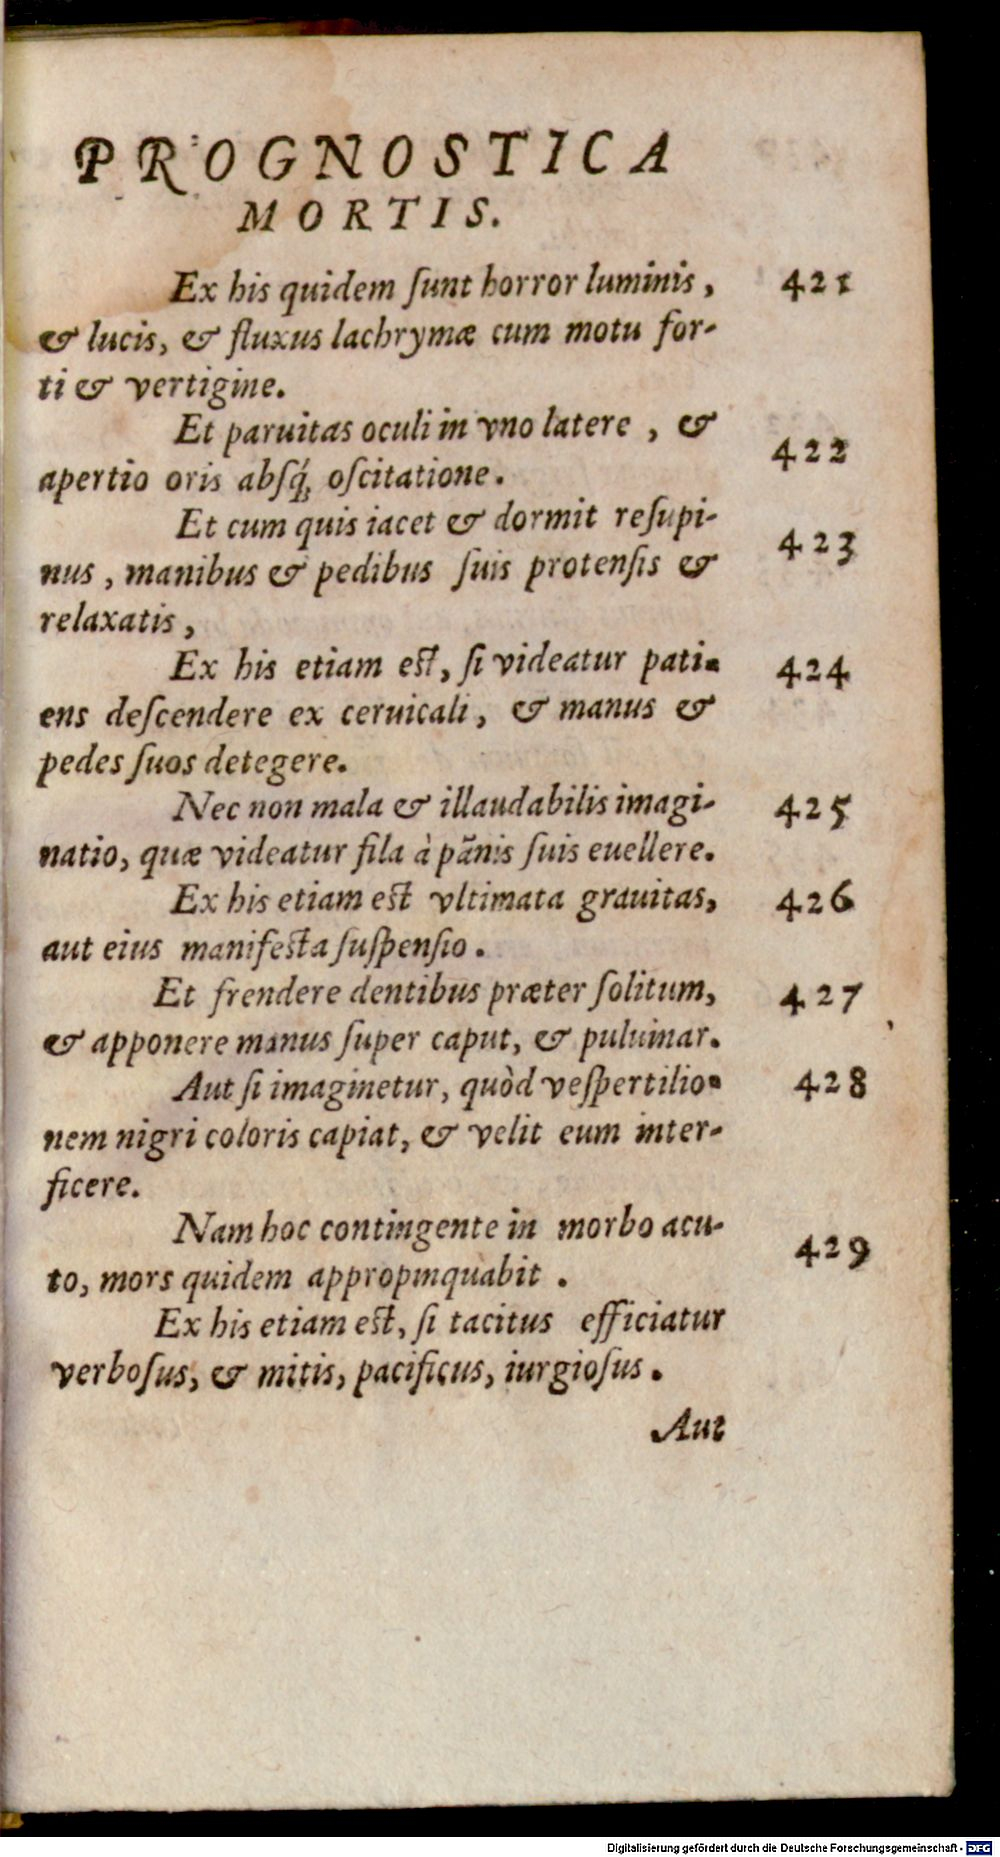 PROGNOSTICA
MORTIS.
Ex his quidem ſunt horror luminis, 421
& lucis, & fluxus lachrymæ cum motu for-
ti & vertigine.
Et paruitas oculi in vno latere, & 422
apertio oris abſq́; oſcitatione.
Et cum quis iacet & dormit reſupi- 423
nus, manibus & pedibus ſuis protenſis &
relaxatis,
Ex his etiam eſt, ſi videatur pati- 424
ens deſcendere ex ceruicali, & manus &
pedes ſuos detegere.
Nec non mala & illaudabilis imagi- 425
natio, quæ videatur fila à pãnis ſuis euellere.
Ex his etiam eſt vltimata grauitas, 426
aut eius manifeſta ſuſpenſio.
Et frendere dentibus præter ſolitum, 427
& apponere manus ſuper caput, & puluinar.
Aut ſi imaginetur, quòd veſpertilio- 428
nem nigri coloris capiat, & velit eum inter-
ficere.
Nam hoc contingente in morbo acu- 429
to, mors quidem appropinquabit.
Ex his etiam eſt, ſi tacitus efficiatur
verboſus, & mitis, pacificus, iurgioſus.
Aut
Digitalisierung gefördert durch die Deutsche Forschungsgemeinschaft - DFG